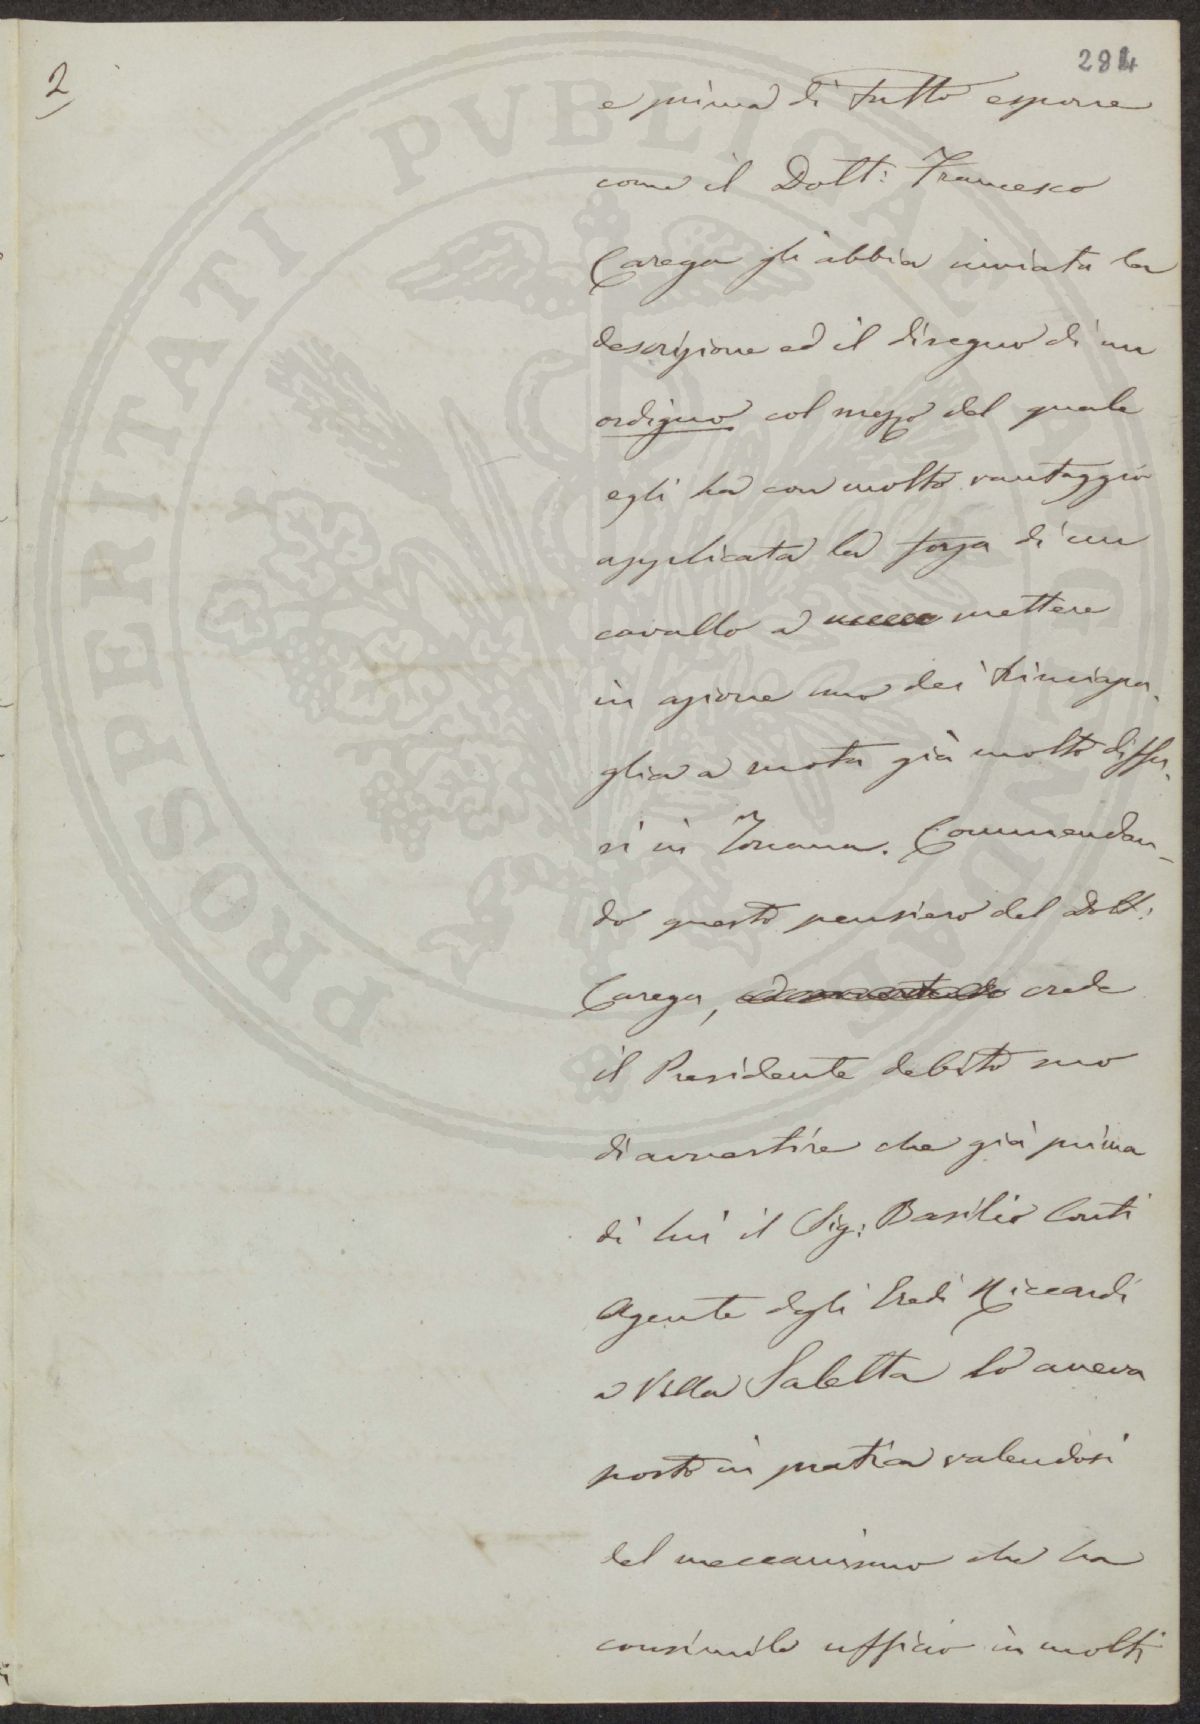 2
284
e prima di tutto espone
come il Dott: Francesco
Carega gli abbia inviata la
descrizione ed il disegno di un
ordigno col mezzo del quale
egli ha con molto vantaggio
applicata la forza di un
cavallo a mettere
in azione uno dei trinciapa-
glia a ruota già molto diffu-
si in Toscana. Commendan-
do questo pensiero del Dott:
Carega, crede
il Presidente debito suo
di avvertire che già prima
di lui il Sig: Basilio Conti
Agente degli Eredi Riccardi
a Villa Saletta lo aveva
posto in pratica valendosi
del meccanismo che ha
consimile ufficio in molti
PROSPERITATI PVBLICAE AVGENDAE